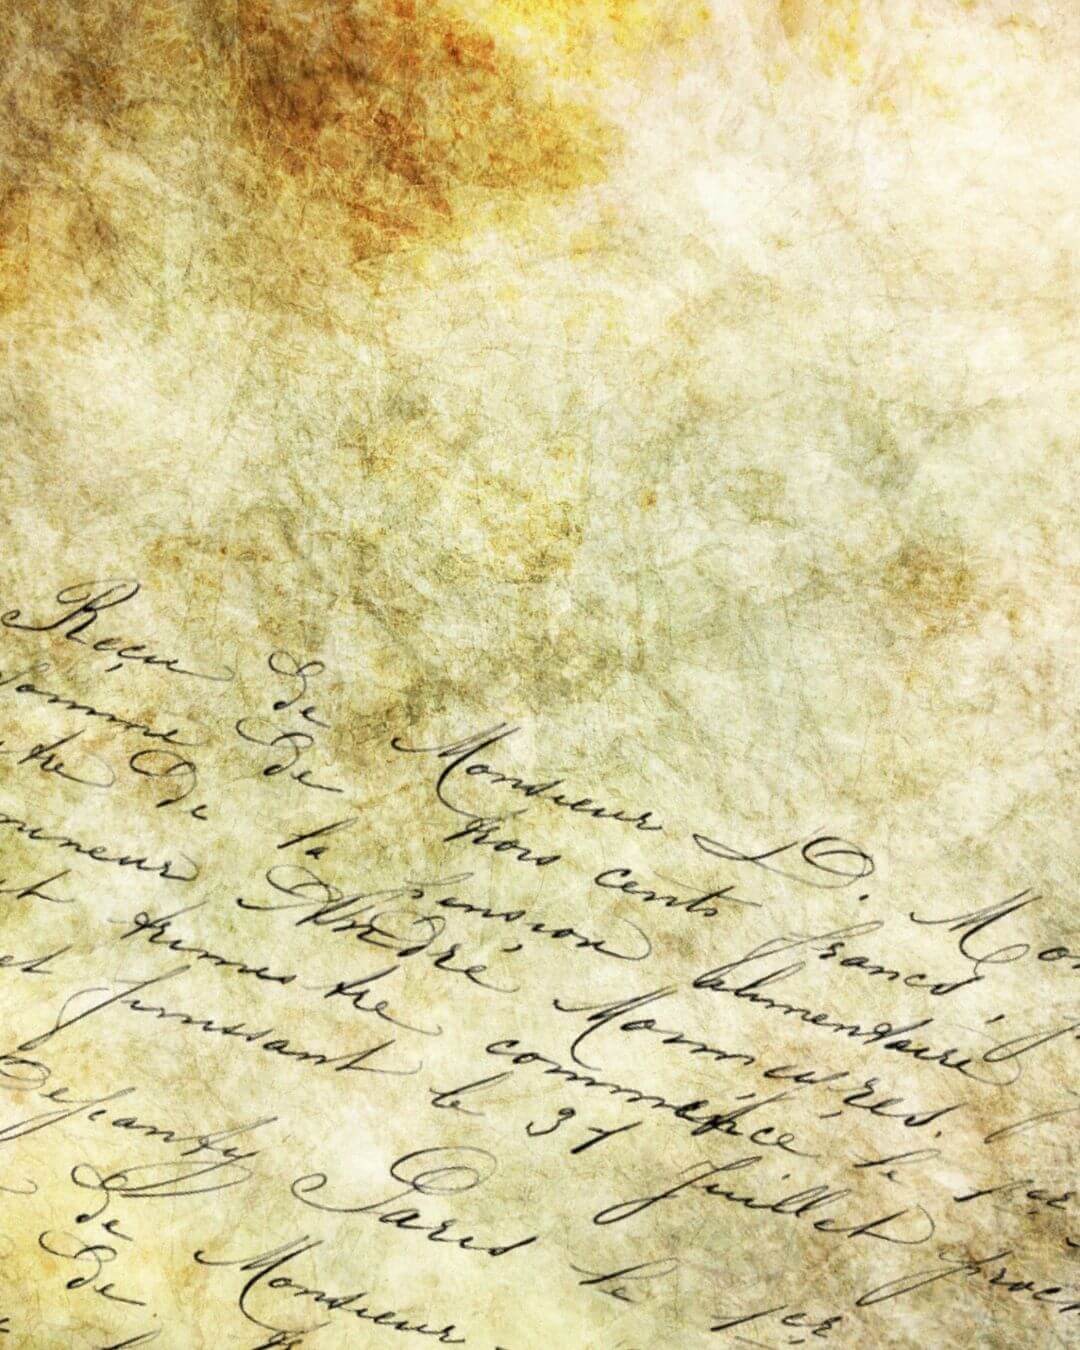 Reçu de Monsieur D. Mon
somme de trois cents francs,
tre de la pension alimentaire
mineur André Monnuzes.
et trimestre commence le 1er
et finissant le 31 Juillet proch
Paris le 1er
de Monsieur
de